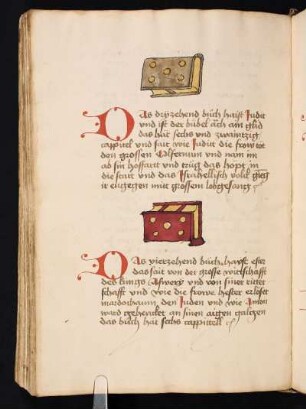 Das dryzehend bůch haist Judit
und ist der bibel ach ain glid
das hat sechs und zwaintzig
cappitel und sait wie Judit die frow
den grossen und nam im
ab sin hoffart und trůg das hopt in
die statt und das Israhellisch volk gieg
ir engegen mitt grossem lobgesang
Das vierzehend bůch hayst ester
das sait von der grosse wirtschaft
des kungs Aswery und von siner ritter
schafft und wie die frowe hester erlost
mardocheum den Juden und wie Amon
ward gehenket an sinen aigen galgen
das bůch hat sechs cappittell